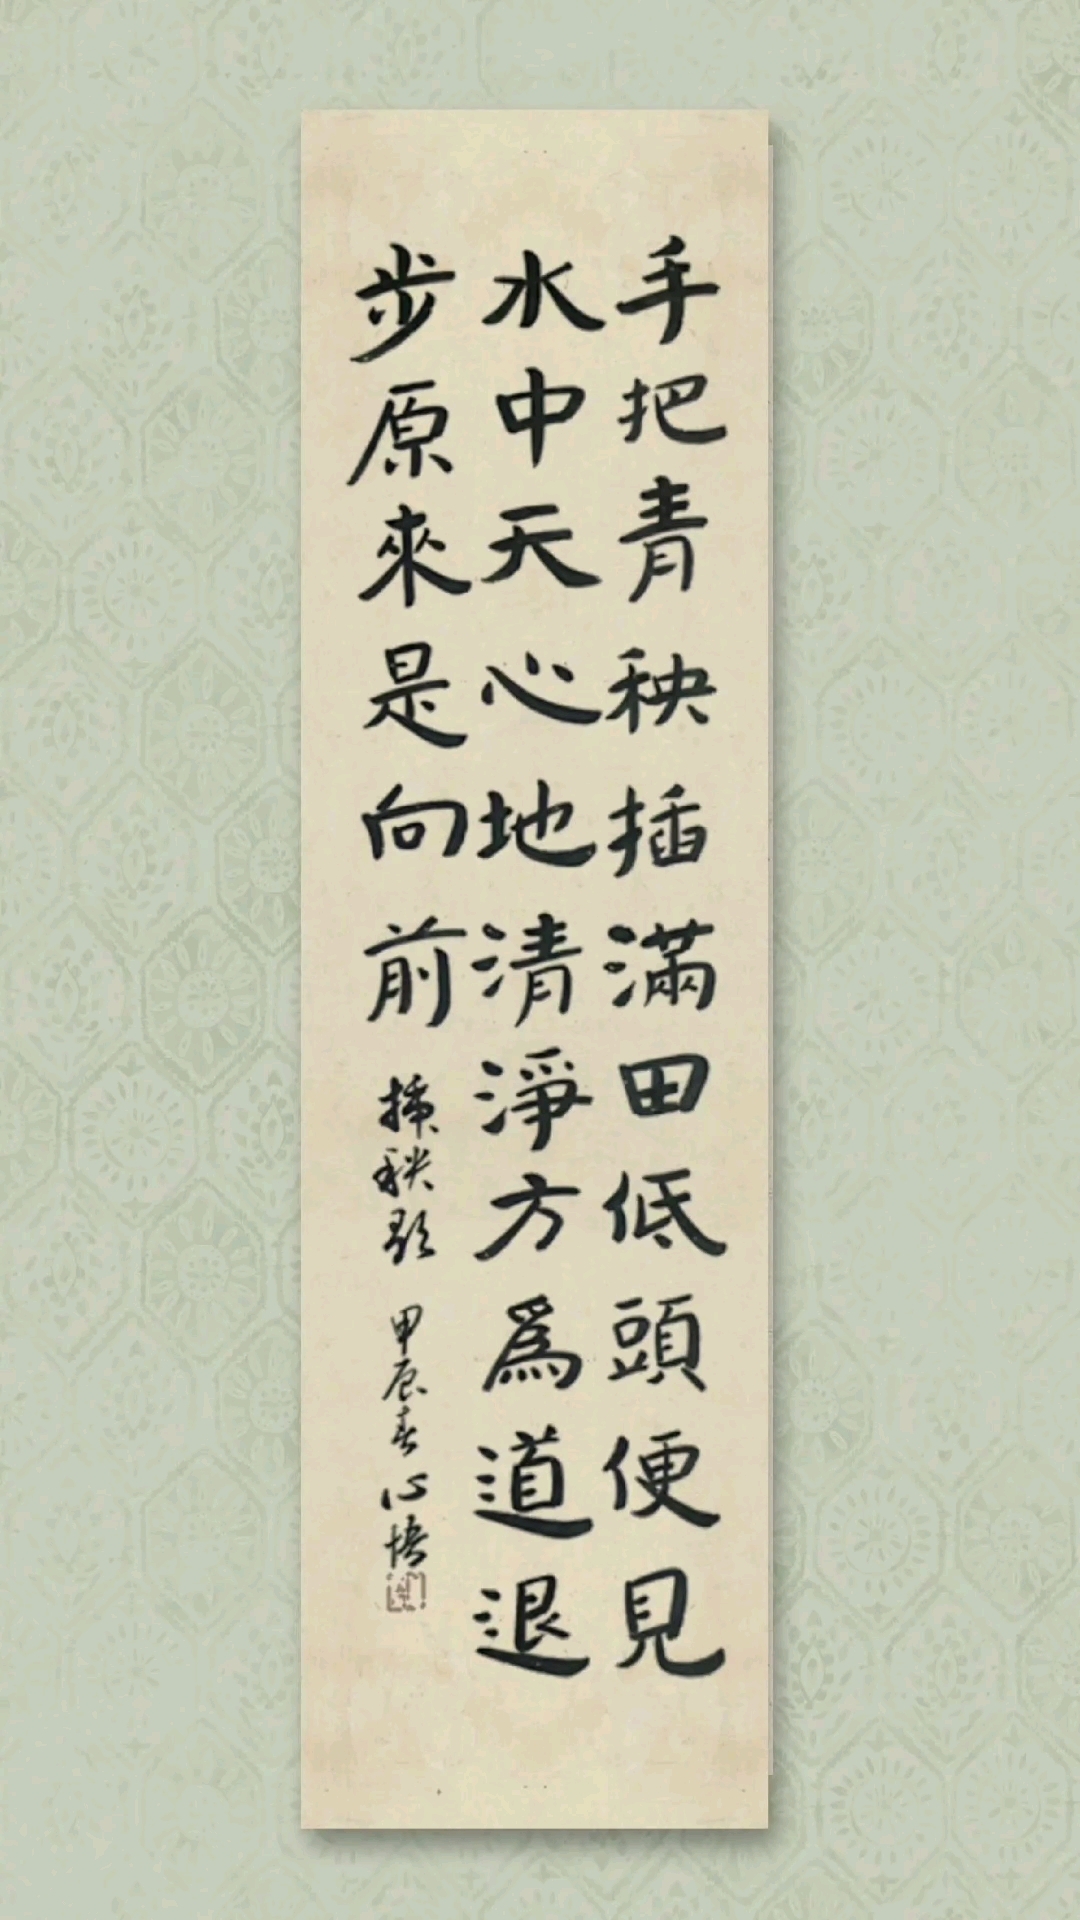 手把青秧插滿田低頭便見
水中天心地清淨方為道退
步原來是向前 插秧歌 甲辰春 心悟